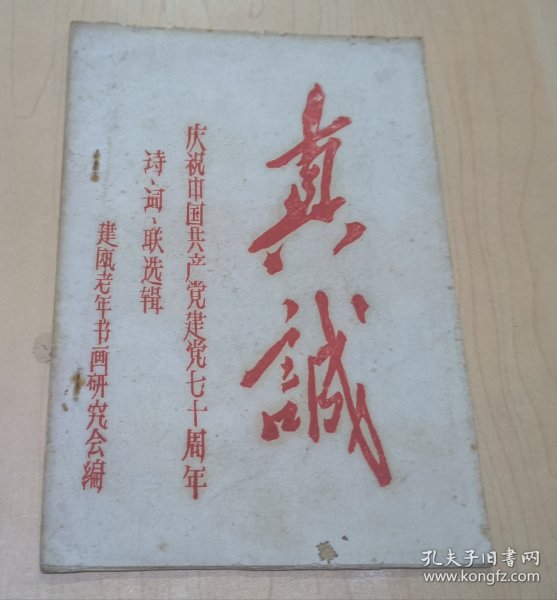 真誠
庆祝中国共产党建党七十周年
诗、词、联选辑
建瓯老年书画研究会编
孔夫子旧书网
www.kongfz.com